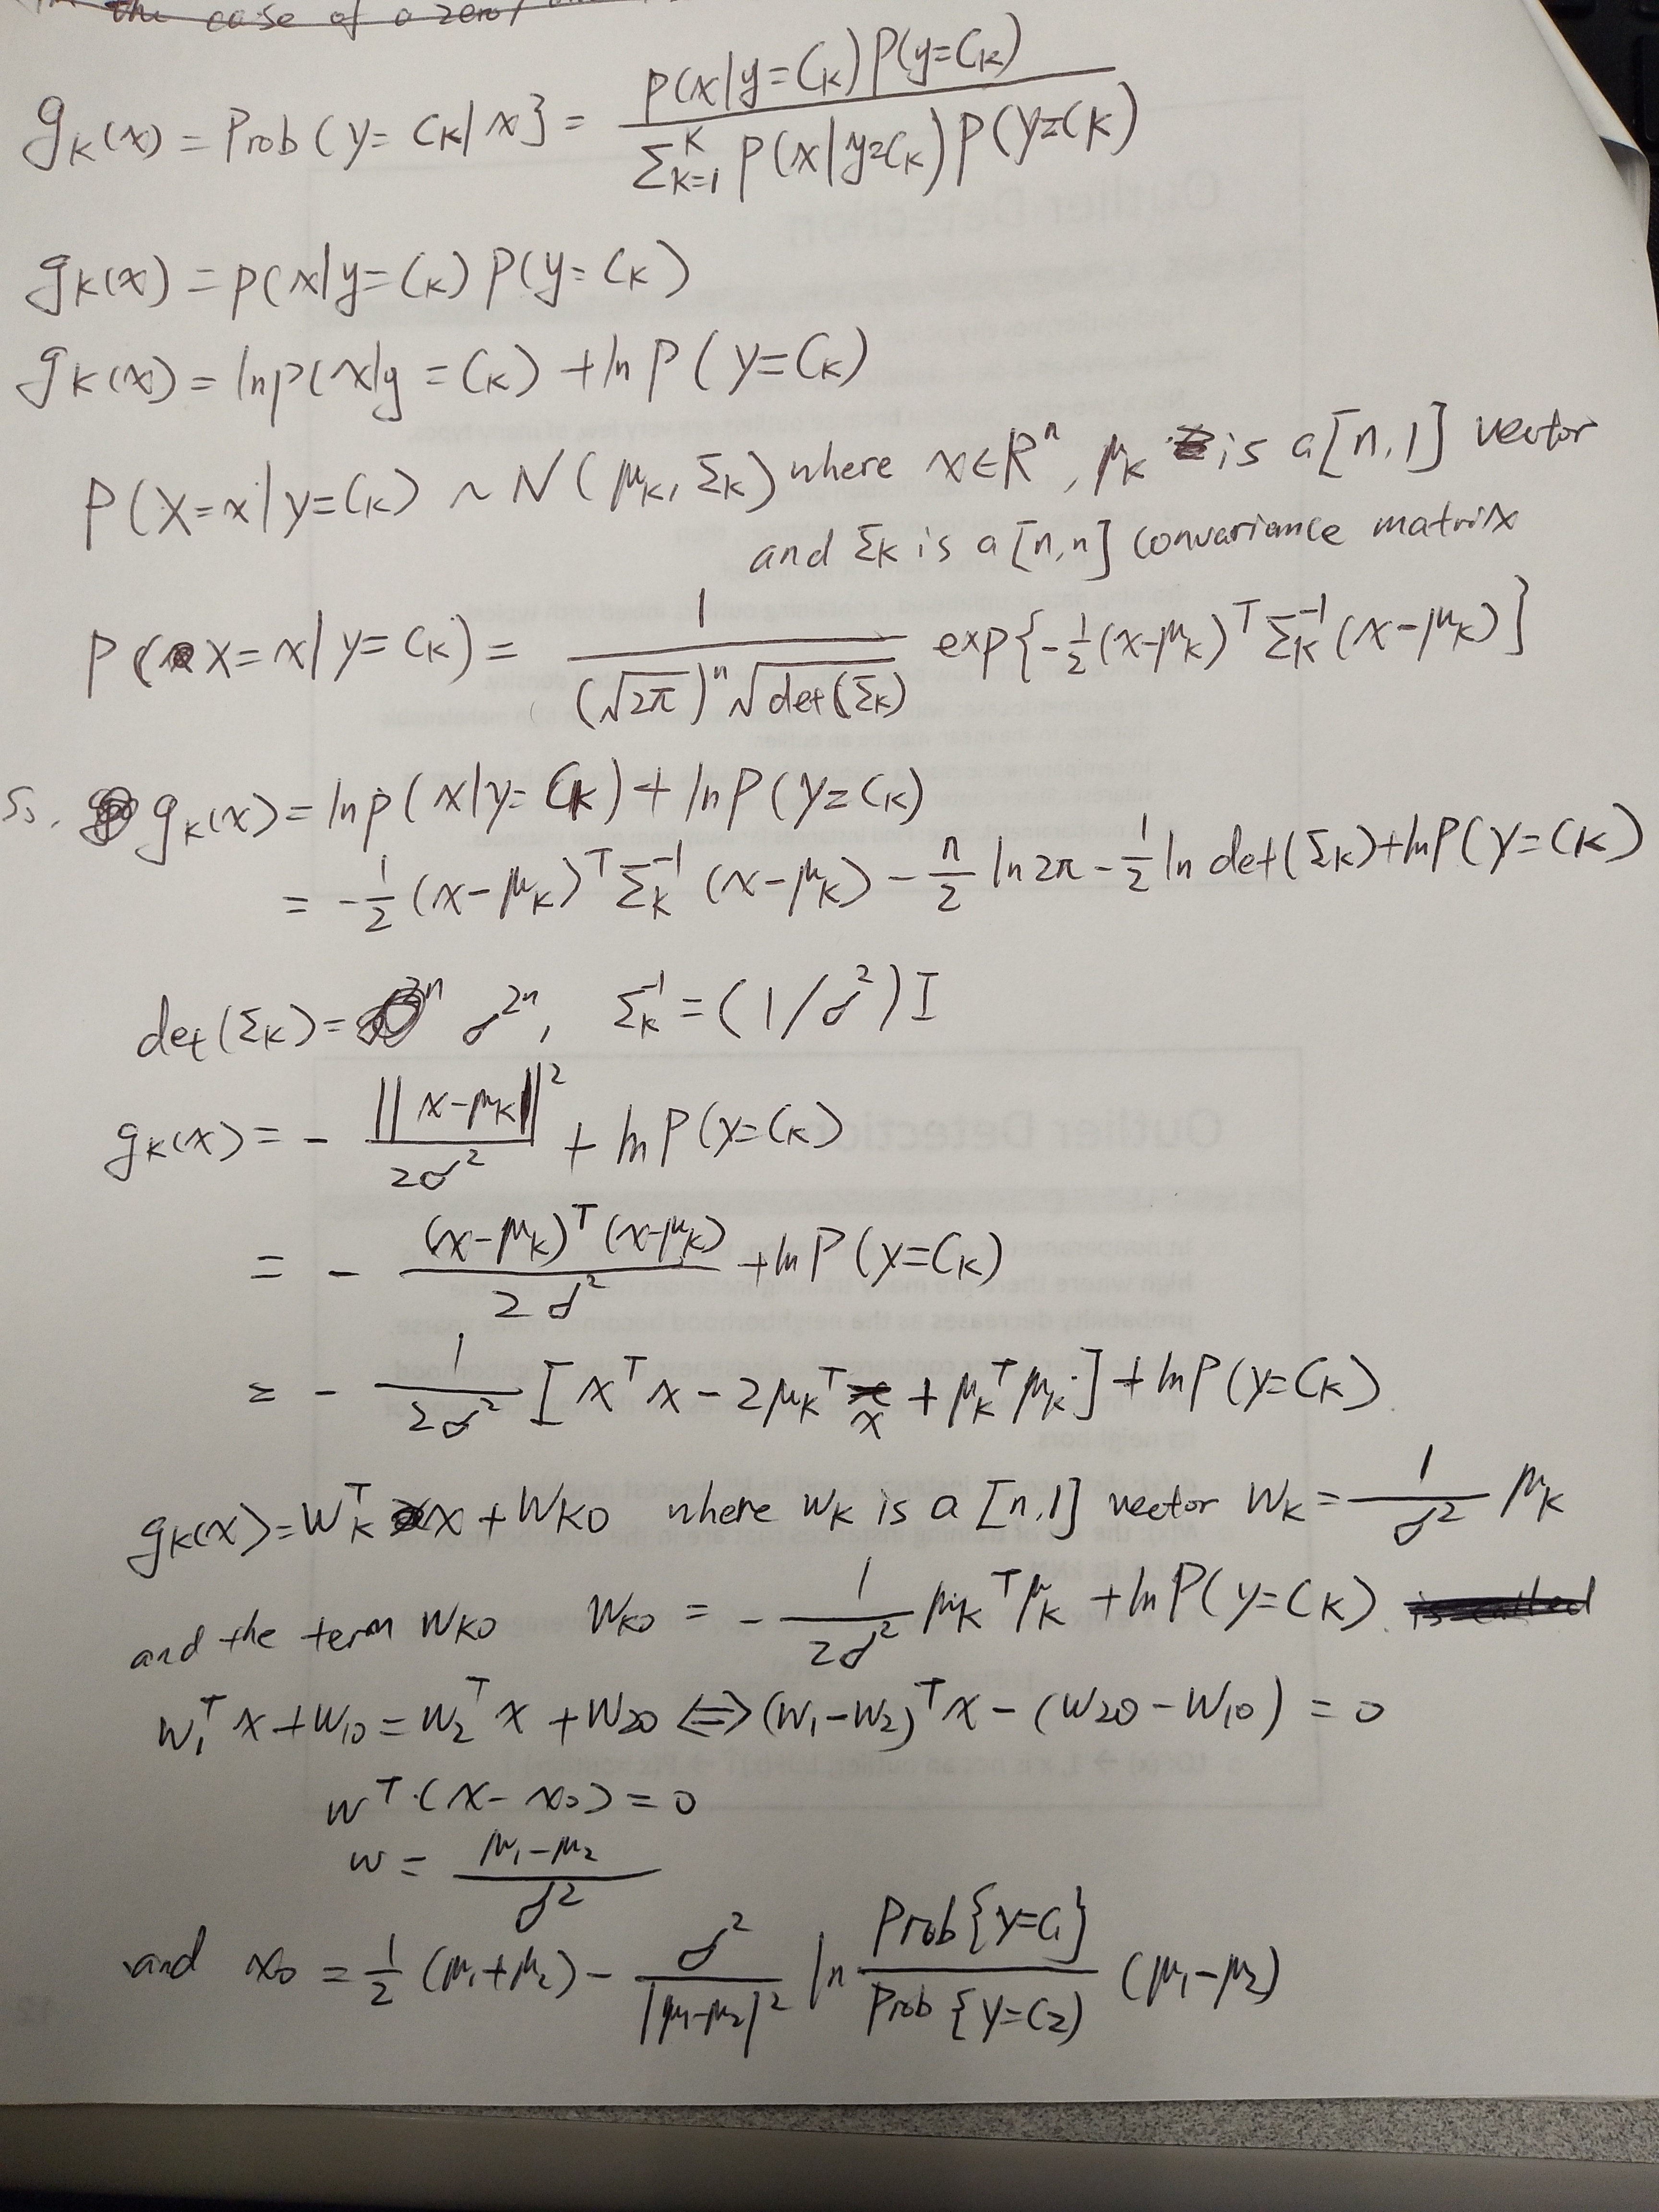 the case of a zero/
g_K(x) = Prob(y = C_K|x} = p(x|y=C_K)P(y=C_K) / Σ_{K=1}^K p(x|y=C_K)P(y=C_K)
g_K(x) = p(x|y=C_K) p(y=C_K)
g_K(x) = ln p(x|y=C_K) + ln P(y=C_K)
P(X=x|y=C_K) ~ N(μ_K, Σ_K) where x∈R^n, μ_K is a [n,1] vector
and Σ_K is a [n,n] convariance matrix
P(X=x|y=C_K) = 1 / ((√2π)^n √det(Σ_K)) exp{-1/2(x-μ_K)^T Σ_K^-1 (x-μ_K)}
So, g_K(x) = ln p(x|y=C_K) + ln P(y=C_K)
= -1/2 (x-μ_K)^T Σ_K^-1 (x-μ_K) - n/2 ln 2π - 1/2 ln det(Σ_K) + ln P(y=C_K)
det(Σ_K) = σ^2n, Σ_K^-1 = (1/σ^2) I
g_K(x) = - ||x-μ_K||^2 / 2σ^2 + ln P(y=C_K)
= - (x-μ_K)^T (x-μ_K) / 2σ^2 + ln P(y=C_K)
= - 1/2σ^2 [x^T x - 2μ_K^T x + μ_K^T μ_K] + ln P(y=C_K)
g_K(x) = w_K^T x + w_K0 where w_K is a [n,1] vector w_K = 1/σ^2 μ_K
and the term w_K0 w_K0 = - 1/2σ^2 μ_K^T μ_K + ln P(y=C_K). is called
w_1^T x + w_10 = w_2^T x + w_20 ⟺ (w_1-w_2)^T x - (w_20 - w_10) = 0
w^T·(x-x_0) = 0
w = μ_1-μ_2 / σ^2
and x_0 = 1/2 (μ_1+μ_2) - σ^2 / |μ_1-μ_2|^2 ln Prob{y=C_1} / Prob{y=C_2) (μ_1-μ_2)